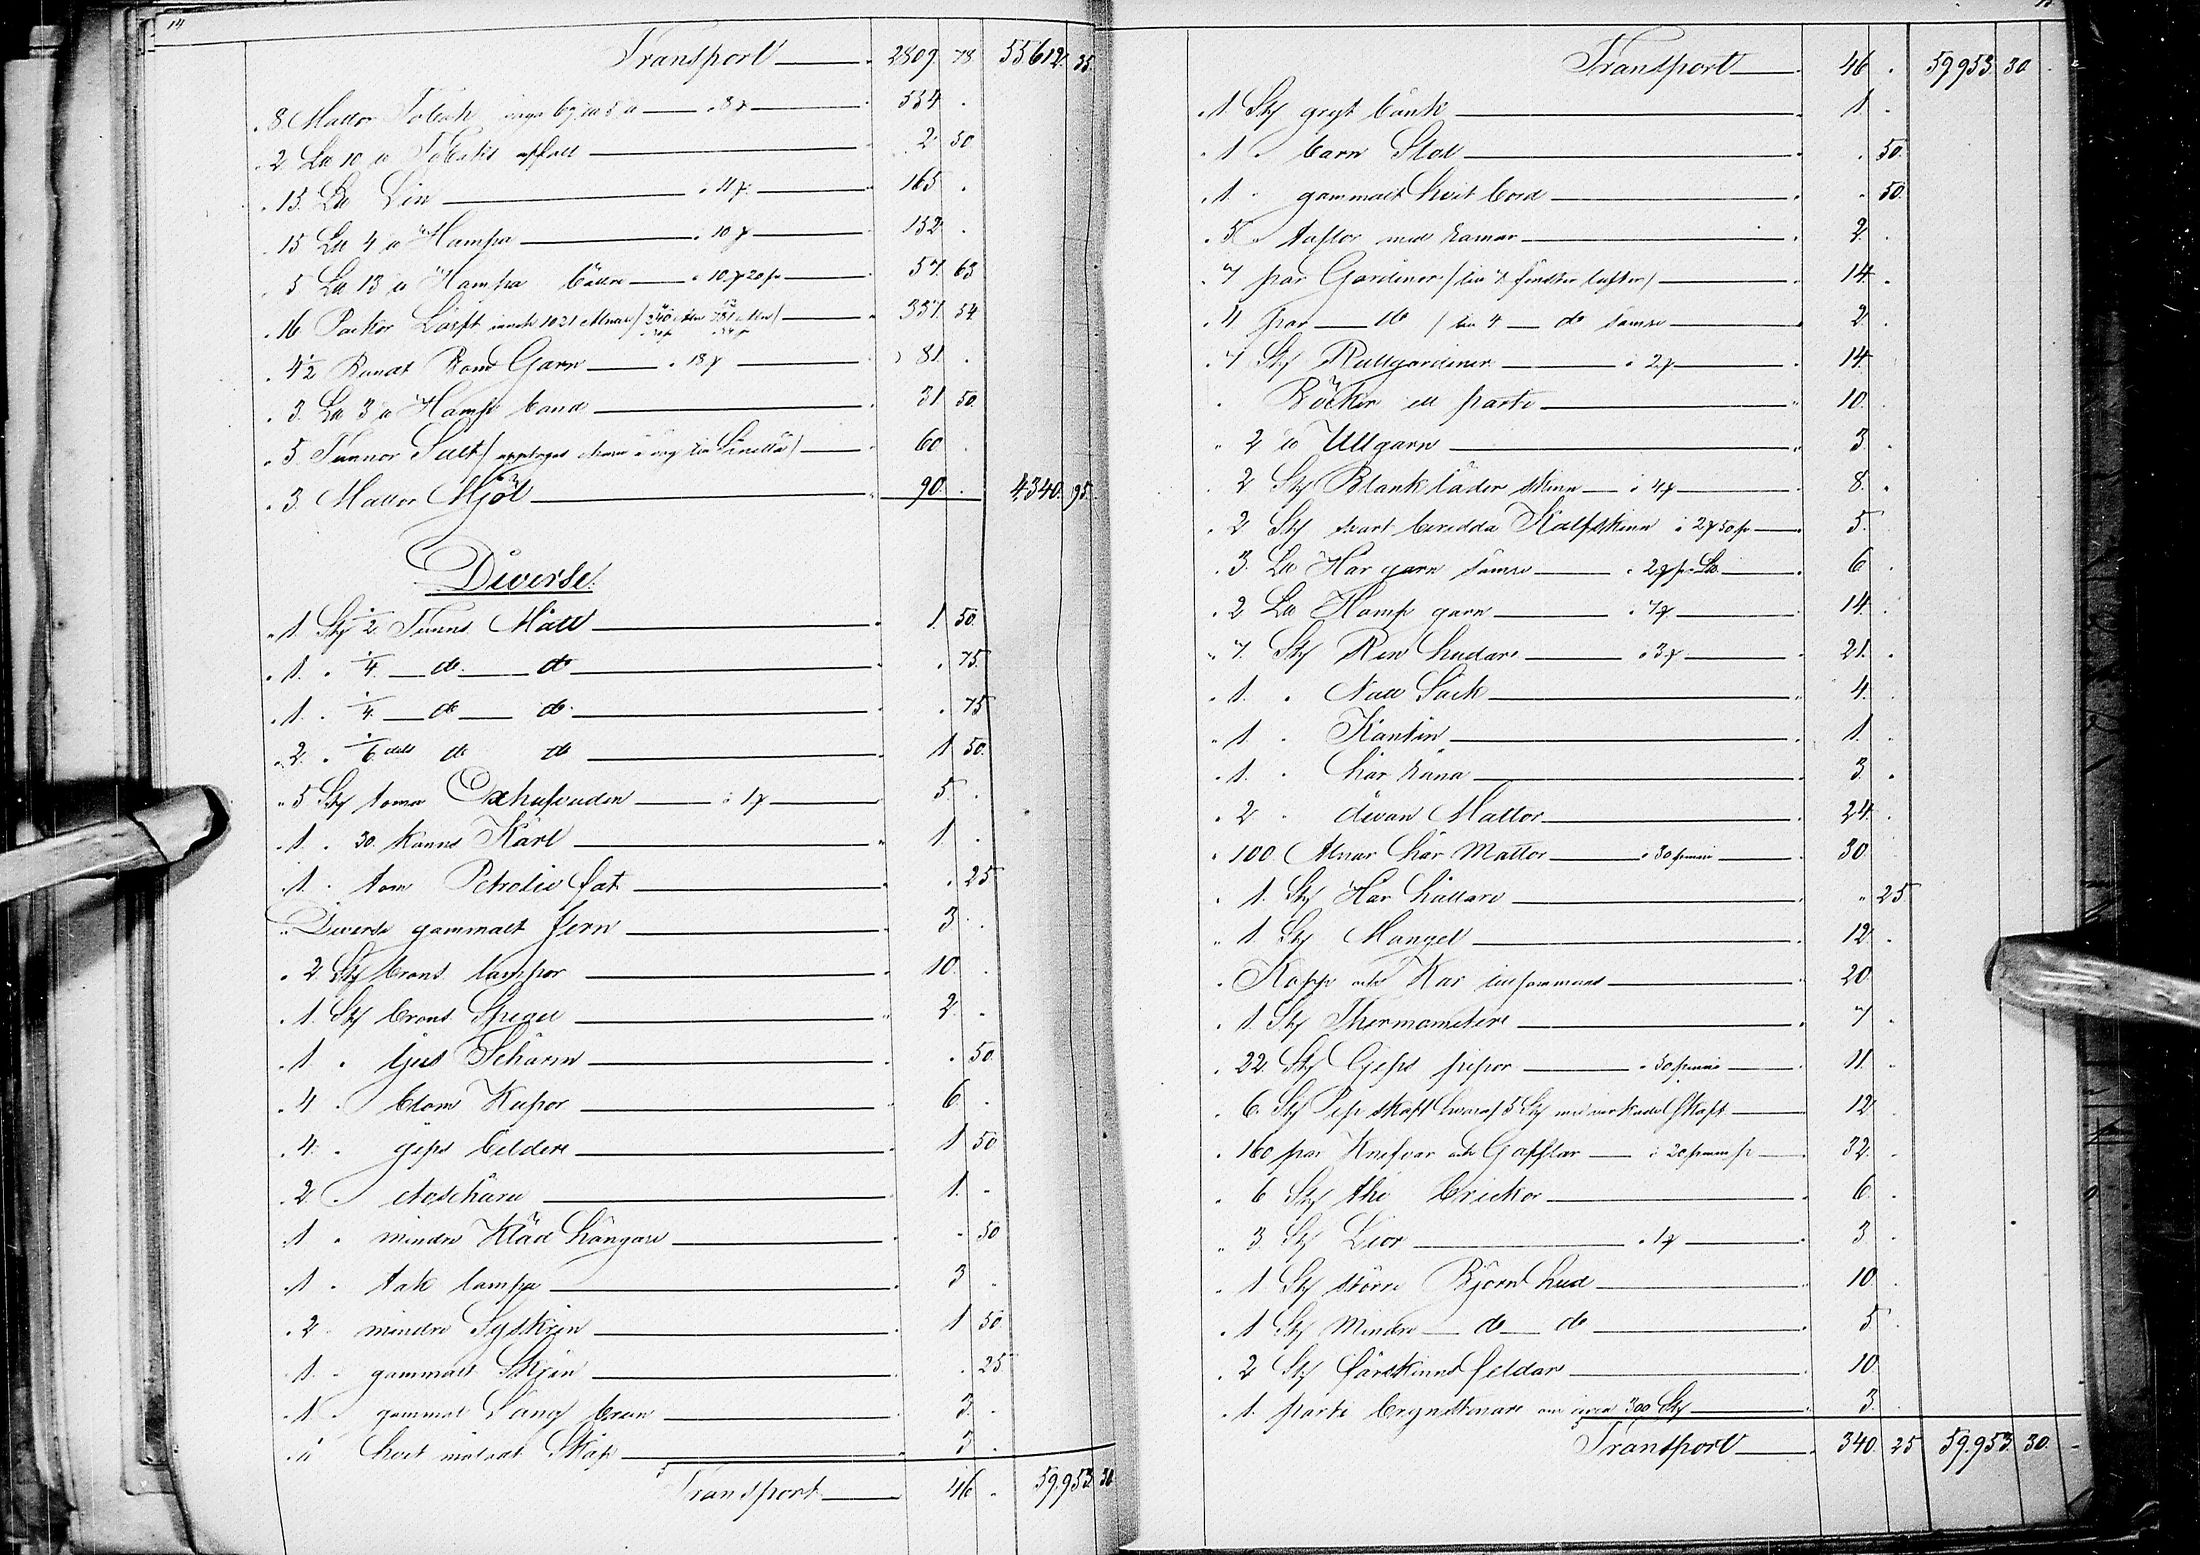 14
Transport 2809. 78. 55612. 35.
8 Mattor Toback 8 534.
2 L℔ 10 ℔ Tobaks affall 2 50.
15 L℔ Lin á 11 165.
15 L℔ 4 ℔ Hampa á 10 152.
5 L℔ 13 ℔ Hampa bättre á 10. 20 57 63
16 Packor Lärft 1021 Alnar 337. 54
4½ Bundt Garn á 18 81.
3 L℔ 3 ℔ Hamp band 31 50.
5 Tunnor Salt 60.
3 Mattor Mjöl 90. 4340. 95.
Diverse.
1 Sty ½ Tunns Mått 1. 50.
1. ¼ do do . 75.
1. ¼ do do . 75
2. 1/6 dels do do 1 50.
5 Sty toma Oxhufvuden á 1 5.
1. 30 Kanns Kärl 1.
1. tom Petrolie fat . 25
Diverse gammalt Jern 3.
2 Sty brons lampor 10.
1. Sty brons Spegel 2.
1. ljus Schärm . 50.
4. blom Kupor 6.
4. gips bildere 1 50
2 1.
1 mindre Kläd hängare . 50
1 tak lampa 3.
2. mindre Syskrin 1 50.
1. gammalt Skrin . 25
1. gammal Säng 3.
1. hvit måladt Skåp 3.
Transport 46. 59.953. 30
Transport 46. 59953. 30
1. Sty bänk 1.
1 barn Stol . 50.
1. gammalt hvit bord . 50.
5 taflor med ramar 2.
7 par Gardiner / till 7 fenster lufter / 14.
4 par do / till 4 do sämre 2.
7 Sty Rullgardiner á 2 14.
Böcker ett parti 10.
2 ℔ Ullgarn 3.
2 Sty Blankläder skinn á 4 8.
2 Sty svart beredda Kalfskinn á 2 50 5.
3 L℔ Hår garn sämre á 2 L℔ 6
2 L℔ Hamp garn á 7 14.
7. Sty Ren hudar á 3 21.
1. Natt Säck 4.
1. Kantin 1.
1. 3.
2 divan Mattor 24.
100. Alnar hår Mattor á 30 30
1. Sty Hår hållare . 25
1 Sty Mangel 12
Kopp och Kar 20
1. Sty Thermometere 7
22 Sty Gips pipor á 50 11.
6 Sty Pip skaft 5 Sty skaft 12
160 par Knifvar och Gafflar á 20 32.
6 Sty the brickor 6.
3 Sty Lior á 1 3
1 Sty större Björn hud 10.
1 Sty Mindre do do 5
2 Sty fårskinns feldar 10
1. parti brynstenar 300 Sty 3.
Transport 340. 25 59.953. 30.